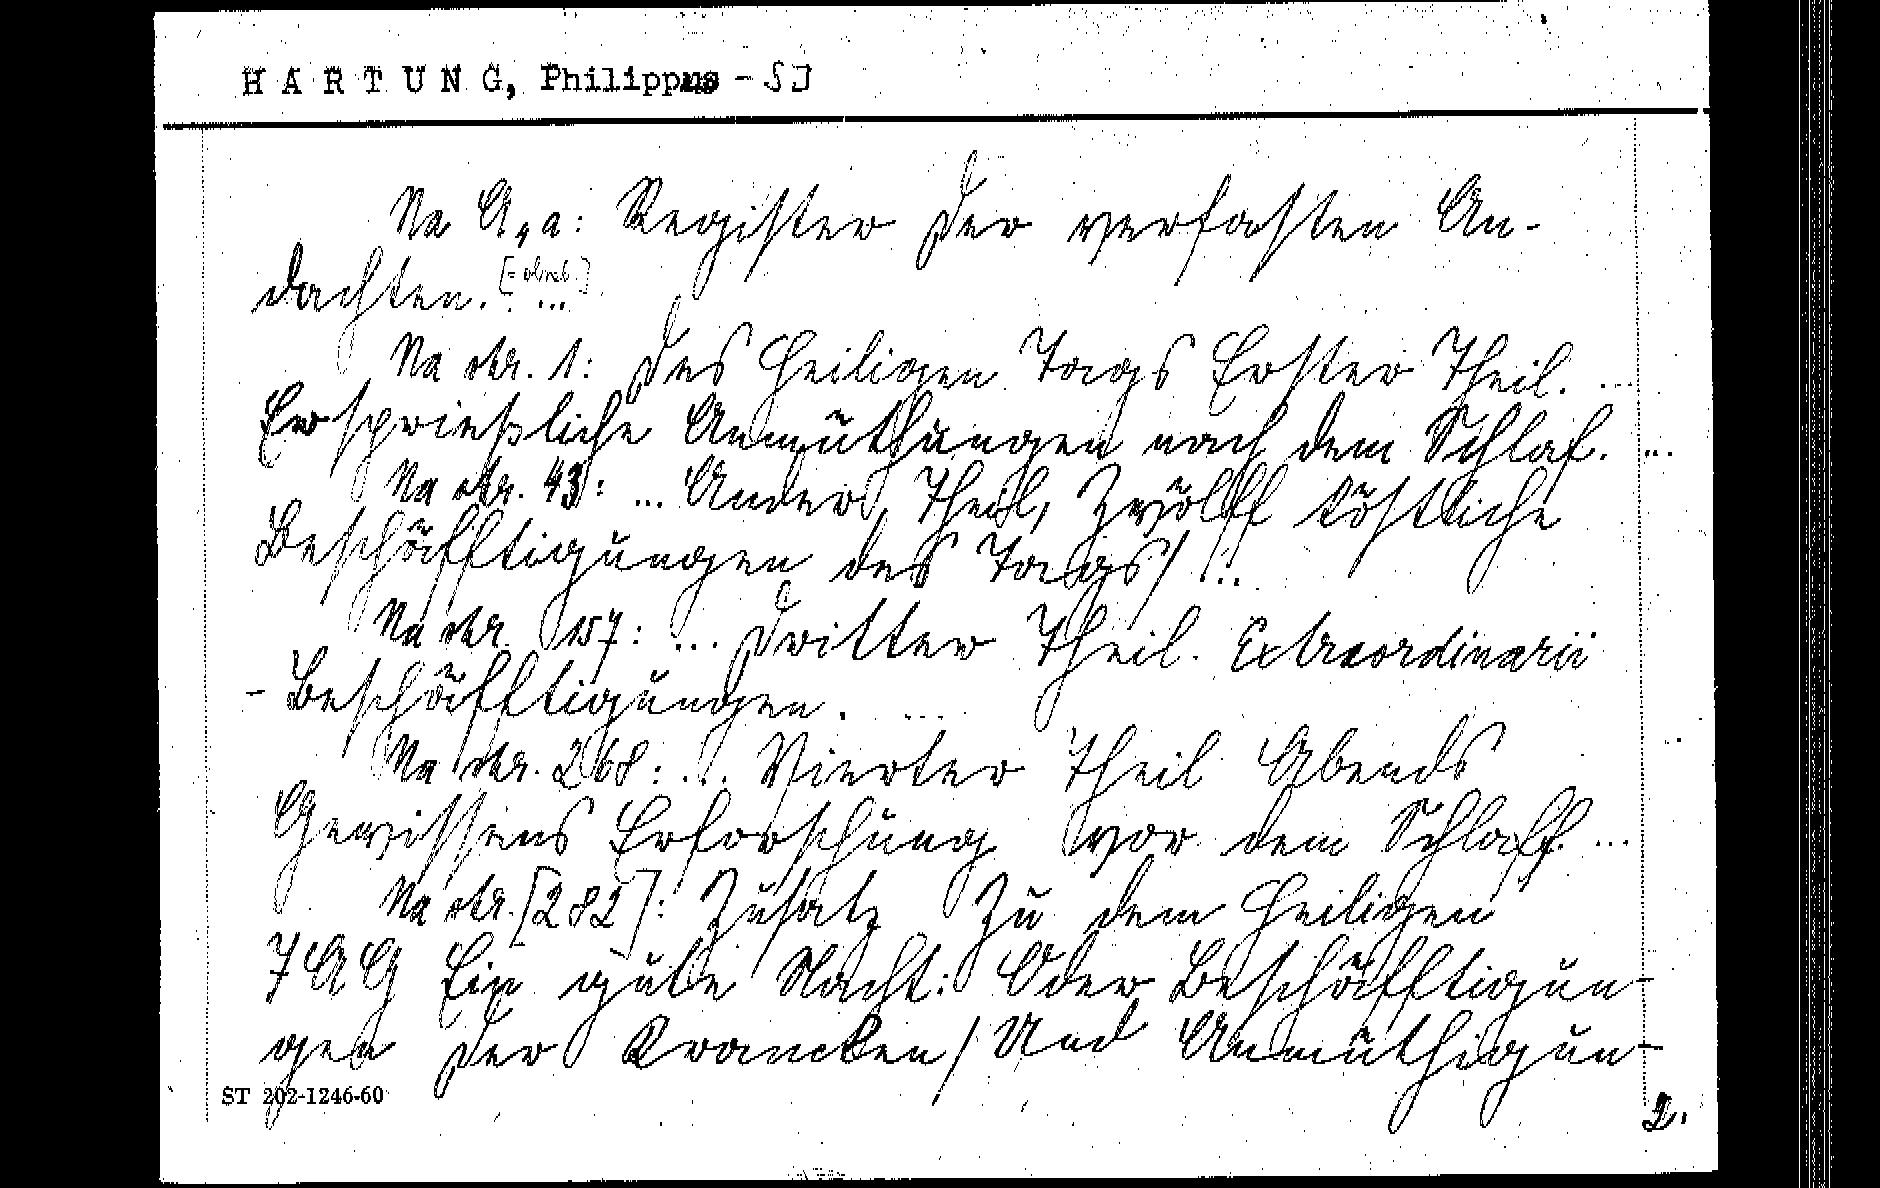 HARTUNG, Philippus - SJ
Na A4a: Register der verfasten An-
dachten. [= obsah.] ...
Na str. 1: Des Heiligen Tags Erster Theil. ...
Ersprießliche Anmüthungen nach dem Schlaf. ...
Na str. 43: ... Ander Theil, Zwölff köstliche
Beschäfftigungen des Tags/ ...
Na str. 157: ... Dritter Theil. Extraordinarii
- Beschäfftigungen. ...
Na str. 268: ... Vierter Theil Abends
Gewissens Erforschung vor dem Schlaff. ...
Na str. [282]: Zusatz Zu dem Heiligen
TAG Ein gute Nacht: Oder Beschäfftigun-
gen Der Krancken/ Und Anmüthigun-
ST 202-1246-60
2.